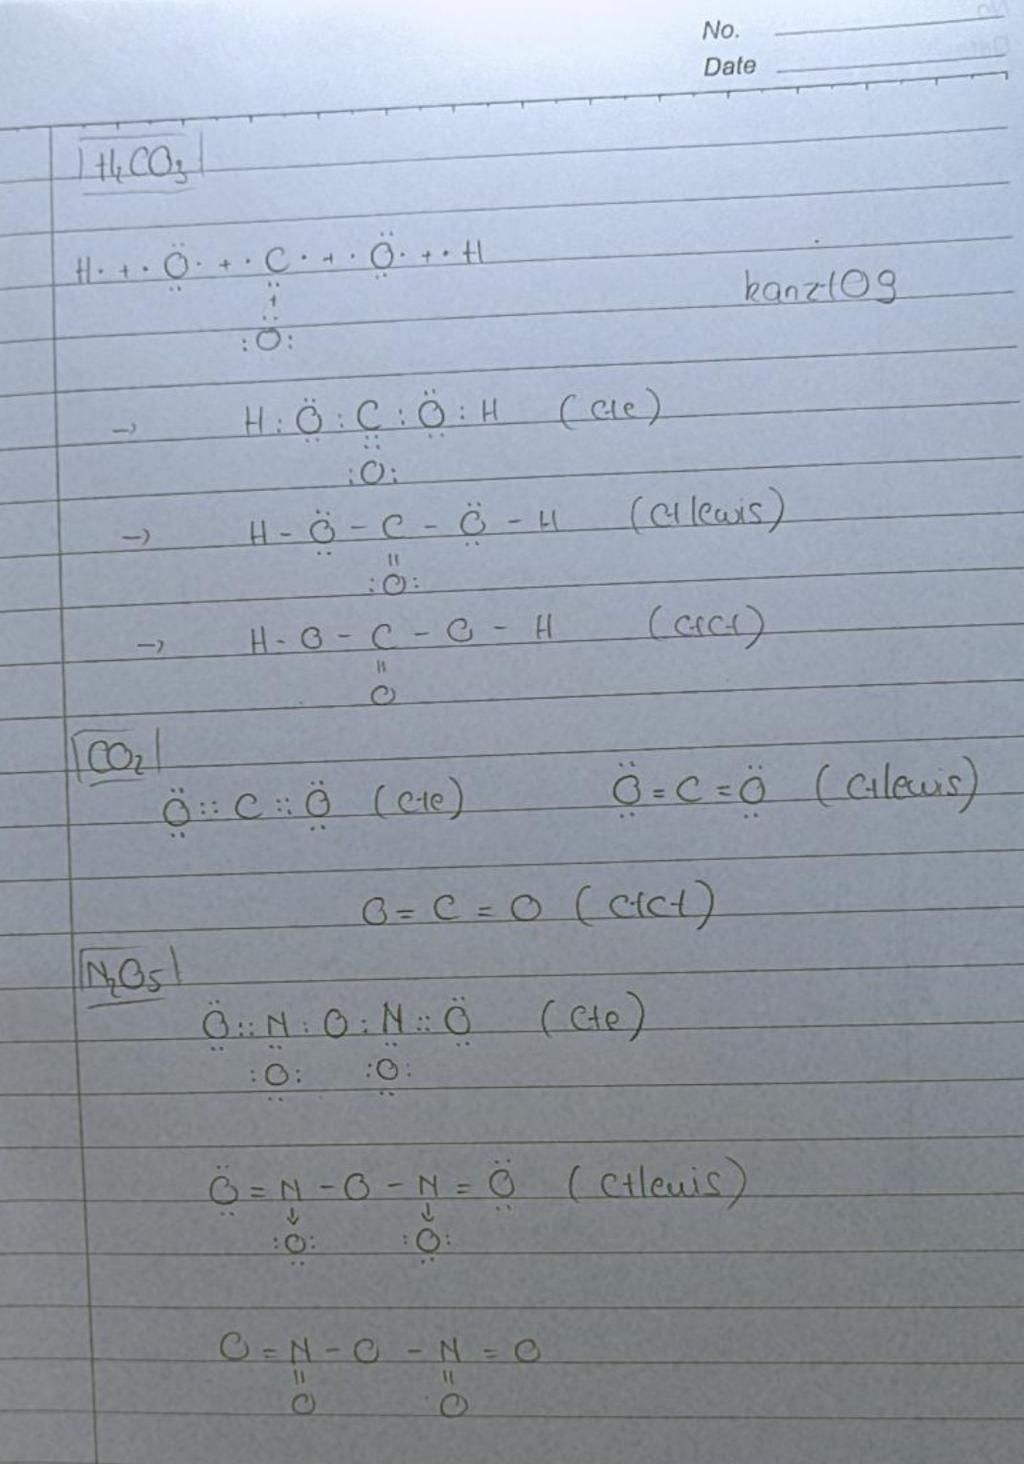 No.
Date
H₂CO₃
H· + ·Ö̤· + ·C· + ·Ö̤· + ·H
+
:O:
kanz109
→ H : Ö̤ : C : Ö̤ : H (cte)
::
:O:
→ H - Ö̤ - C - Ö̤ - H (Ctlewis)
||
:O:
→ H - O - C - O - H (CtCt)
||
O
CO₂
Ö̤ :: C :: Ö̤ (Cte)
Ö̤ = C = Ö̤ (Ctlewis)
O = C = O (CtCt)
N₂O₅
Ö̤ :: N : O : N :: Ö̤ (Cte)
:O̤: :O̤:
Ö̤ = N - O - N = Ö̤ (Ctlewis)
↓ ↓
:O̤: :O̤:
O = N - O - N = O
|| ||
O O